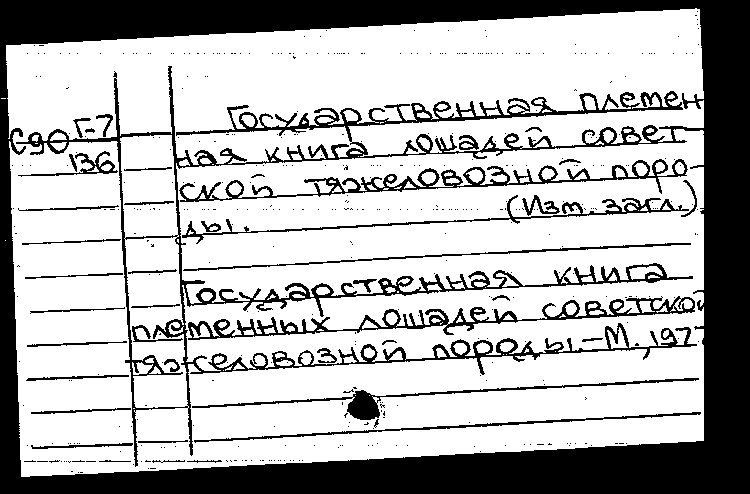 Г-7
С90
136
Государственная племен
ная книга лошадей совет-
ской тяжеловозной поро-
ды. (Изм. загл.).
Государственная книга
племенных лошадей советской
тяжеловозной породы.-М.,1977